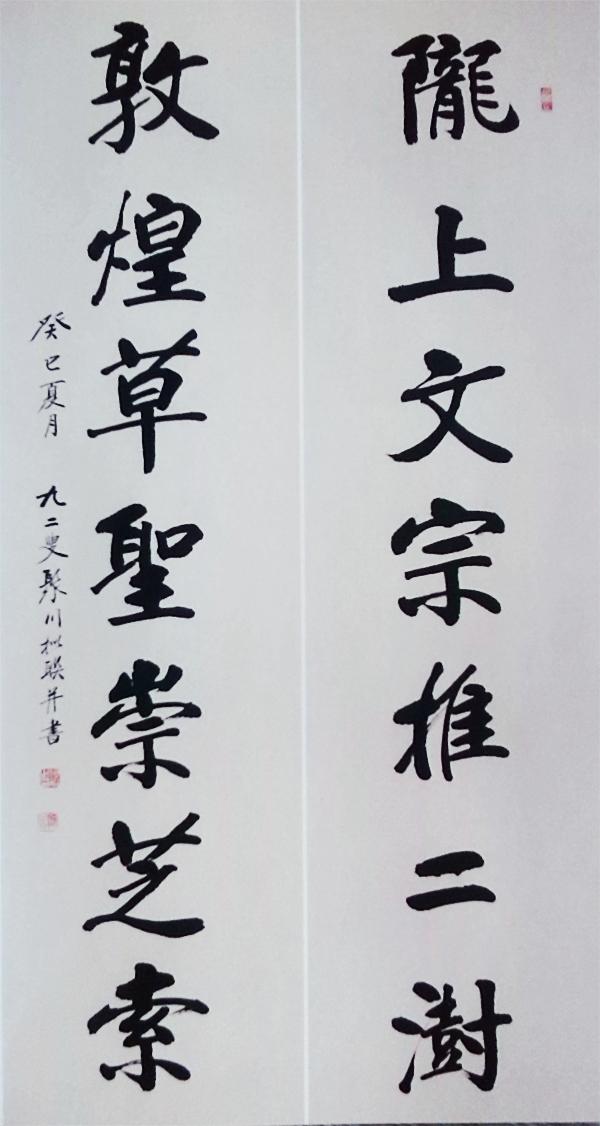 隴上文宗推二澍
敦煌草聖崇芝索
癸巳夏月 九二叟聚川拟联并書